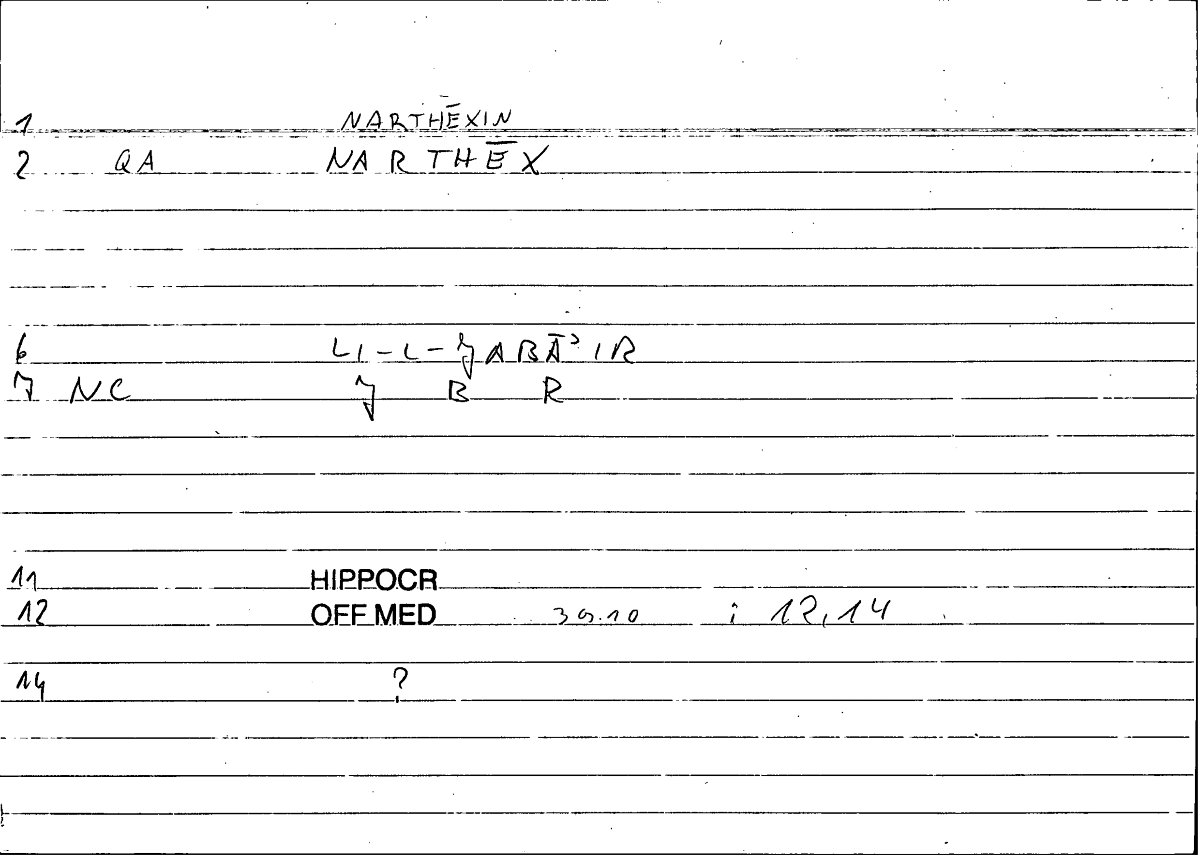 1 NARTHĒXIN
2 QA NARTHĒX
6 LI-L-JABĀʾIR
7 NC J B R
11 HIPPOCR
12 OFF MED 39.10 ; 12,14
14 ?